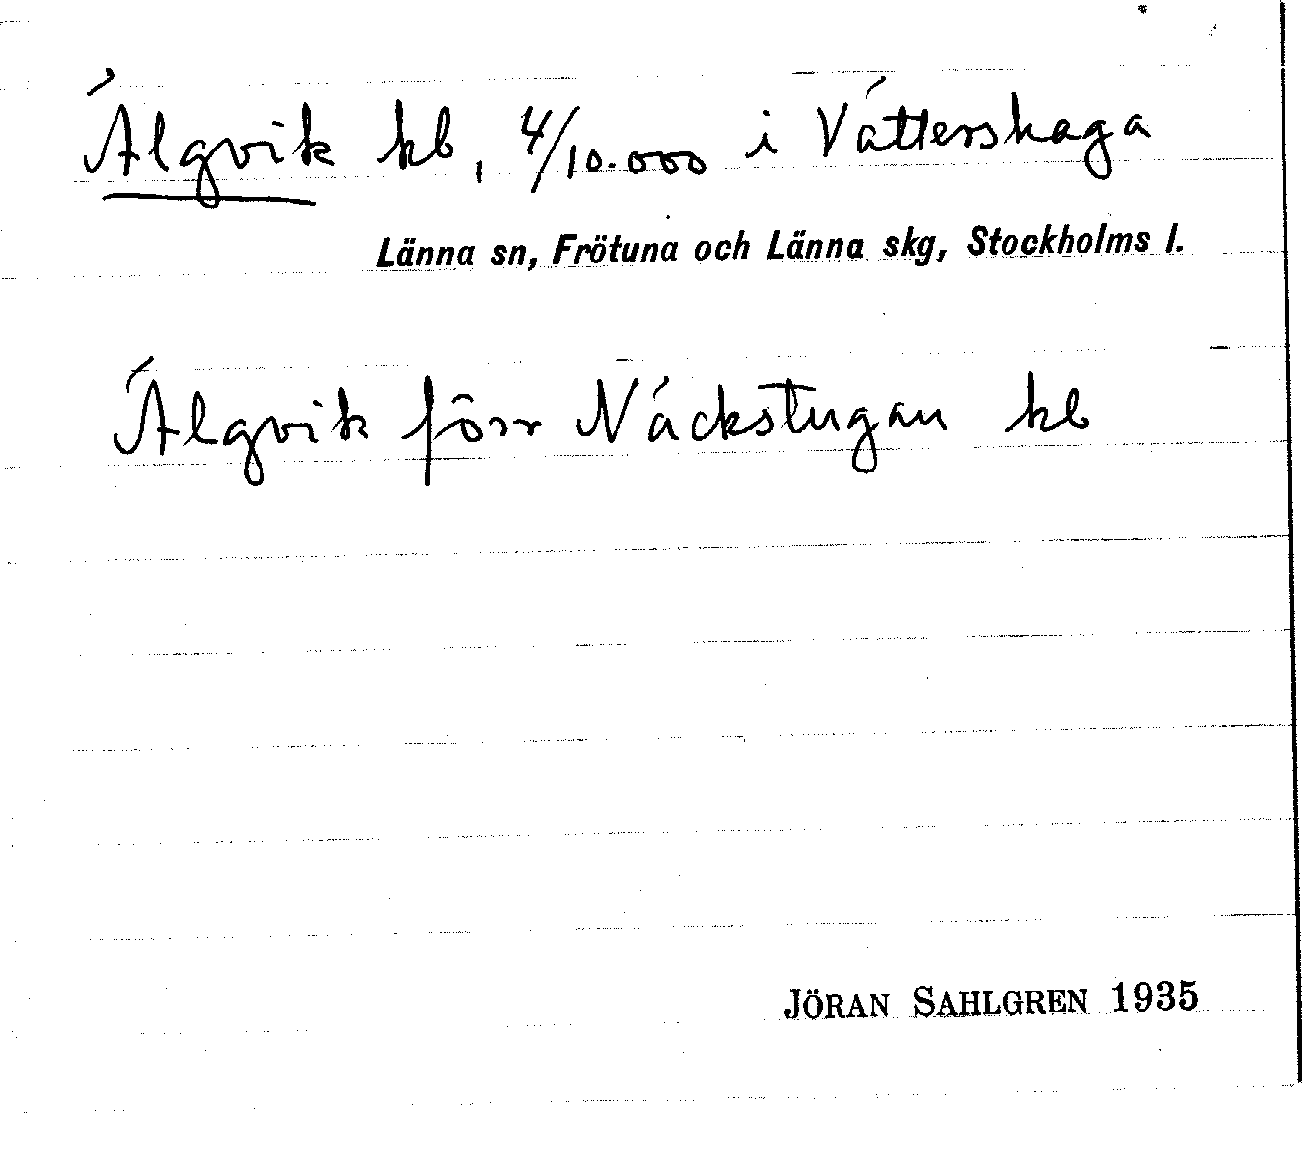 Älgvik kb, 4/10.000 i Vätterskaga
Länna sn, Frötuna och Länna skg, Stockholms l.
Älgvik förr Näckstugan kb
JÖRAN SAHLGREN 1935